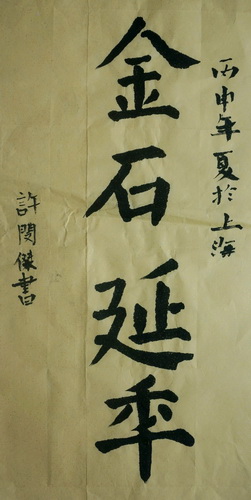 丙申年夏於上海
金石延年
許閔傑書